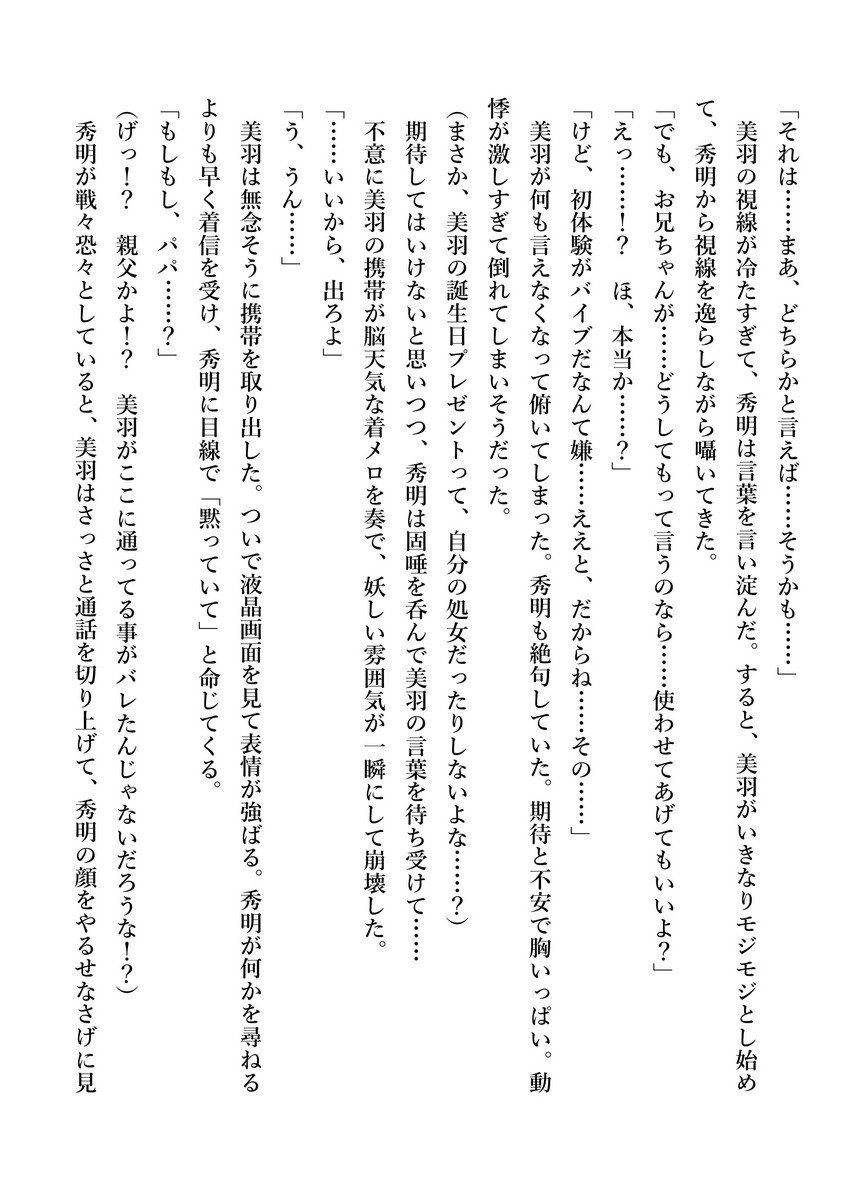 「それは……まあ、どちらかと言えば……そうかも……」
美羽の視線が冷たすぎて、秀明は言葉を言い淀んだ。すると、美羽がいきなりモジモジとし始め
て、秀明から視線を逸らしながら囁いてきた。
「でも、お兄ちゃんが……どうしてもって言うのなら……使わせてあげてもいいよ？」
「えっ……！？　ほ、本当か……？」
「けど、初体験がバイブだなんて嫌……ええと、だからね……その……」
美羽が何も言えなくなって俯いてしまった。秀明も絶句していた。期待と不安で胸いっぱい。動
悸が激しすぎて倒れてしまいそうだった。
（まさか、美羽の誕生日プレゼントって、自分の処女だったりしないよな……？）
期待してはいけないと思いつつ、秀明は固唾を呑んで美羽の言葉を待ち受けて……
不意に美羽の携帯が脳天気な着メロを奏で、妖しい雰囲気が一瞬にして崩壊した。
「……いいから、出ろよ」
「う、うん……」
美羽は無念そうに携帯を取り出した。ついで液晶画面を見て表情が強ばる。秀明が何かを尋ねる
よりも早く着信を受け、秀明に目線で「黙っていて」と命じてくる。
「もしもし、パパ……？」
（げっ！？　親父かよ！？　美羽がここに通ってる事がバレたんじゃないだろうな！？）
秀明が戦々恐々としていると、美羽はさっさと通話を切り上げて、秀明の顔をやるせなさげに見